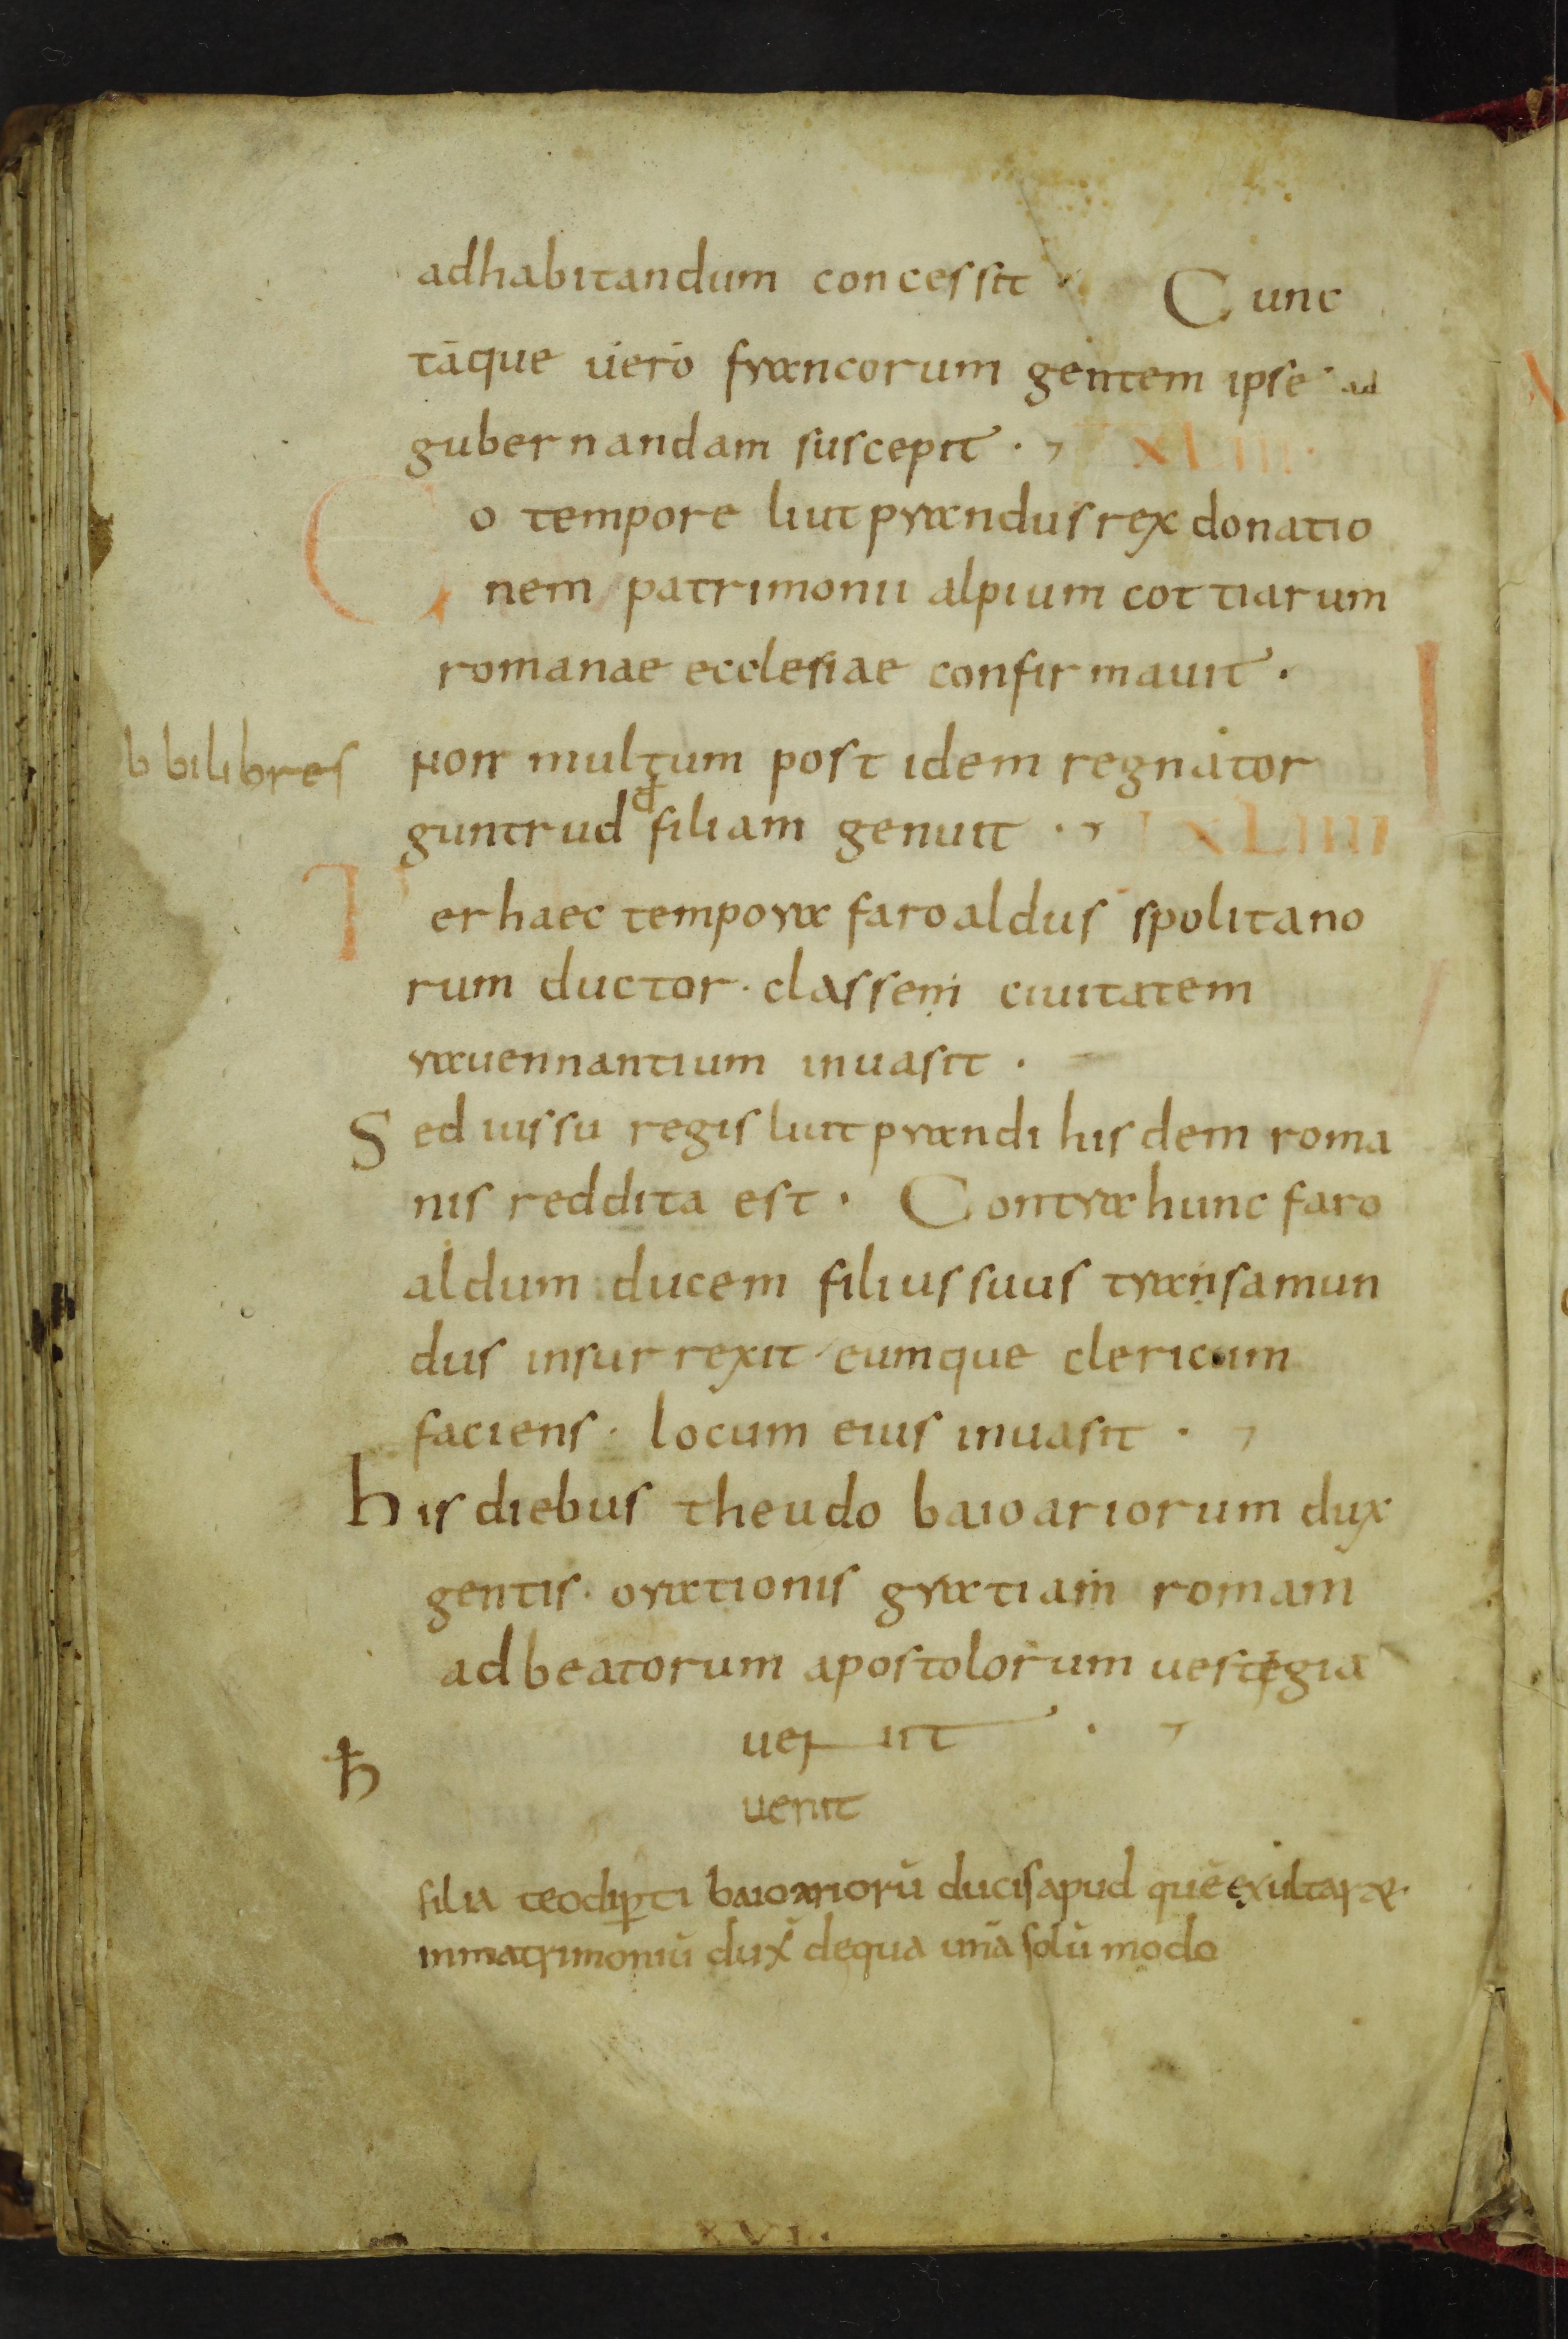 adhabitandum concessit · Cunc
taque uero francorum gentem ipse ad
gubernandam suscepit · XLIII·
Eo tempore liutprandus rex donatio
nem patrimonii alpium cottiarum
romanae ecclesiae confirmauit ·
b bilibres
Non multum post idem regnator
guntrud filiam genuit · XLIIII
Per haec tempora faroaldus spolitano
rum ductor · classem ciuitatem
rauennantium inuasit ·
Sed iussu regis liutprandi hisdem roma
nis reddita est · Contra hunc faro
aldum ducem filius suus transamun
dus insurrexit eumque clericum
faciens · locum eius inuasit ·
his diebus theudo baioariorum dux
gentis · orationis gratiam romam
ad beatorum apostolorum uestegia
uenit ·
ħ
uenit
filia teodiꝑti baioariorū ducis apud quē exultarat
in matrimoniū dux̄ de qua unā solū modo
XVI·